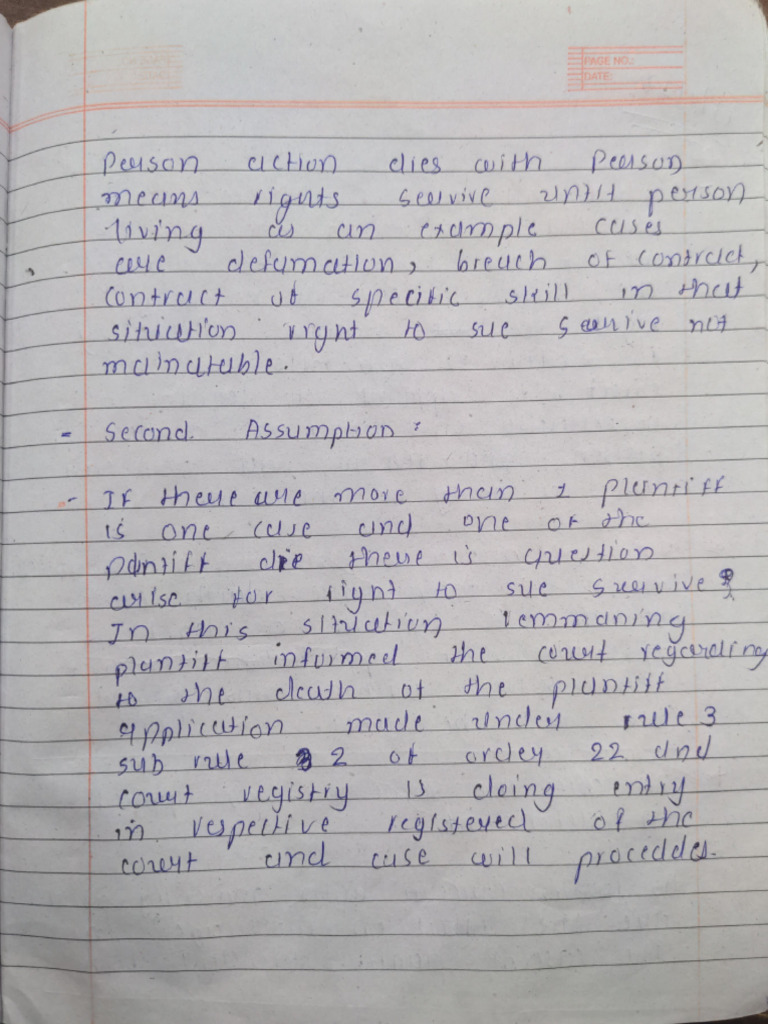 PAGE NO.:
DATE:
Person action dies with Person
means rights survive until person
living as an example cases
are defamation, breach of contract,
contract of specific skill in that
situation right to sue survive not
mainatable.
- Second. Assumption :
- If there are more than 1 plantiff
is one case and one of the
plantiff die there is question
arise for right to sue survive?
In this situation remmaning
plantiff informed the court regarding
to the death of the plantiff
application made under rule 3
sub rule 2 of order 22 and
court registry is doing entry
in respective registered of the
court and case will proceddes.